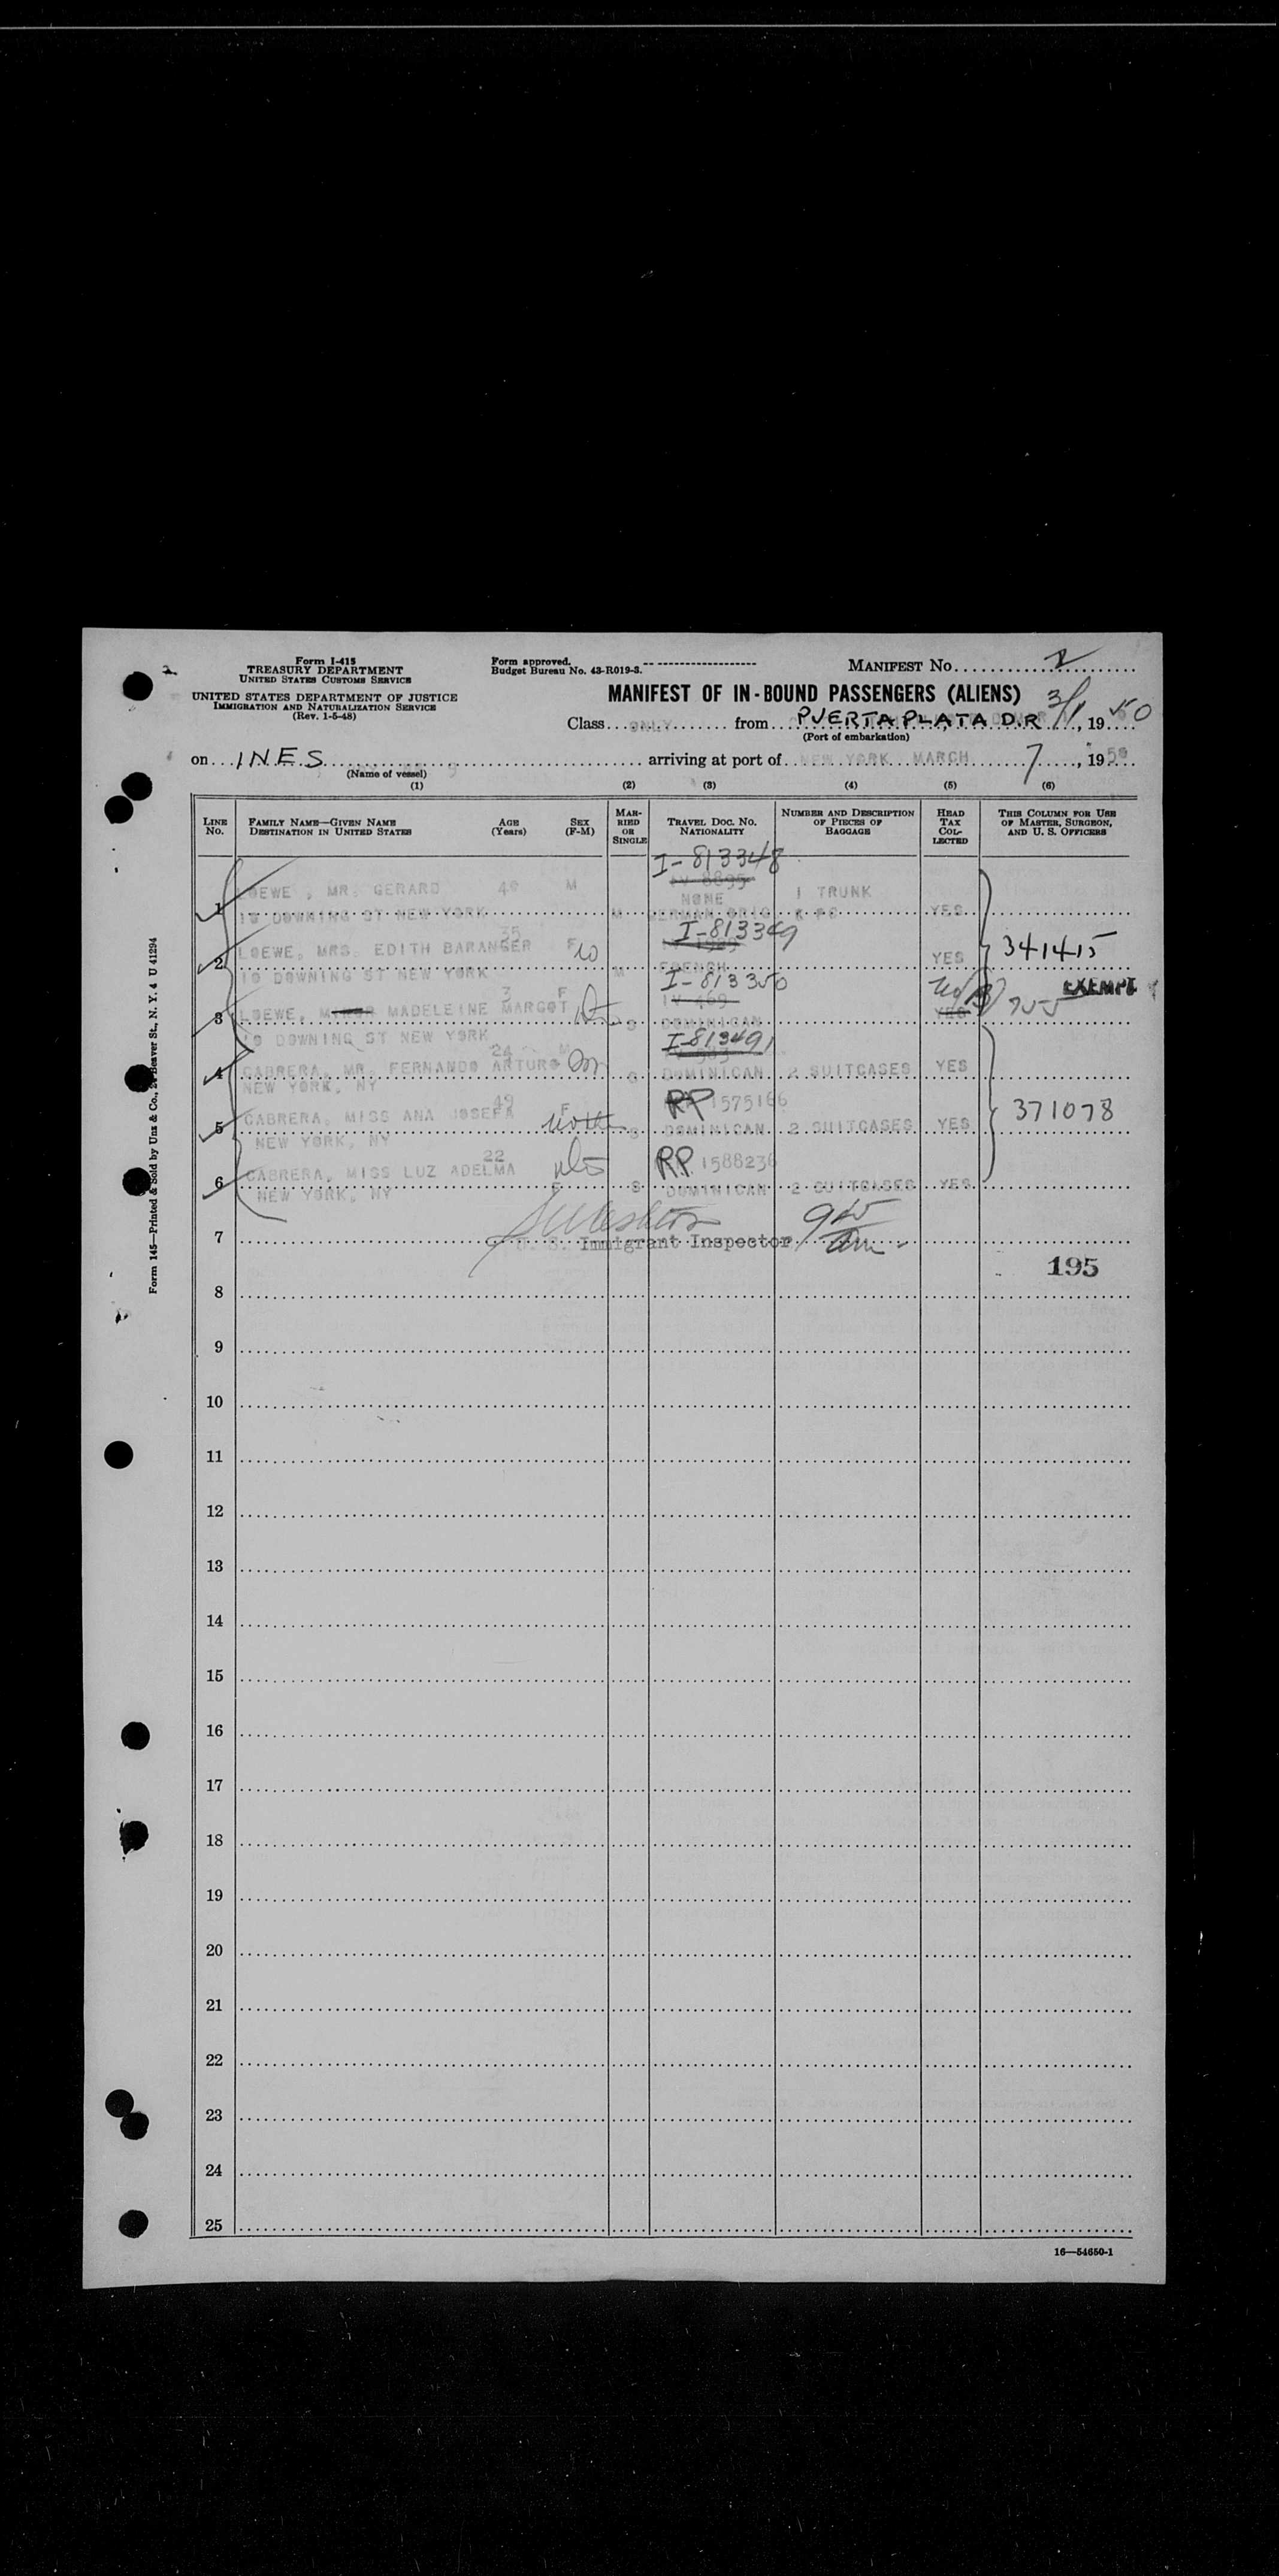 Form I-415
TREASURY DEPARTMENT
UNITED STATES CUSTOMS SERVICE
UNITED STATES DEPARTMENT OF JUSTICE
IMMIGRATION AND NATURALIZATION SERVICE
(Rev. 1-5-48)
Form approved.
Budget Bureau No. 43-R019-3.
MANIFEST No. 2
MANIFEST OF IN-BOUND PASSENGERS (ALIENS)
Class ONLY from PUERTA PLATA D.R 3/1, 1950
(Port of embarkation)
on INES arriving at port of NEW YORK MARCH 7, 1950
(Name of vessel)
(1) (2) (3) (4) (5) (6)
LINE No. FAMILY NAME—GIVEN NAME DESTINATION IN UNITED STATES AGE (Years) SEX (F-M) MARRIED OR SINGLE TRAVEL DOC. NO. NATIONALITY NUMBER AND DESCRIPTION OF PIECES OF BAGGAGE HEAD TAX COLLECTED THIS COLUMN FOR USE OF MASTER, SURGEON, AND U. S. OFFICERS
I-813348
LOEWE, MR. GERARD 40 M NONE 1 TRUNK
1 10 DOWNING ST NEW YORK M GERMAN ORIG YES
I-813349
2 LOEWE, MRS. EDITH BARANGER 35 F YES 341415
10 DOWNING ST NEW YORK M FRENCH
I-813350 EXEMPT
3 LOEWE, MADELEINE MARGOT 3 F S DOMINICAN YES
10 DOWNING ST NEW YORK
I-813491
4 CABRERA, MR. FERNANDO ARTURO 24 M S DOMINICAN 2 SUITCASES YES
NEW YORK, NY
RP 1575166
5 CABRERA, MISS ANA JOSEFA 49 F S DOMINICAN 2 SUITCASES YES 371078
NEW YORK, NY
RP 1588236
6 CABRERA, MISS LUZ ADELMA 22 F S DOMINICAN 2 SUITCASES YES
NEW YORK, NY
7 U. S. Immigrant Inspector
195
8
9
10
11
12
13
14
15
16
17
18
19
20
21
22
23
24
25
16—54650-1
Form 145—Printed & Sold by Unz & Co., 24 Beaver St., N. Y. 4 U 41294